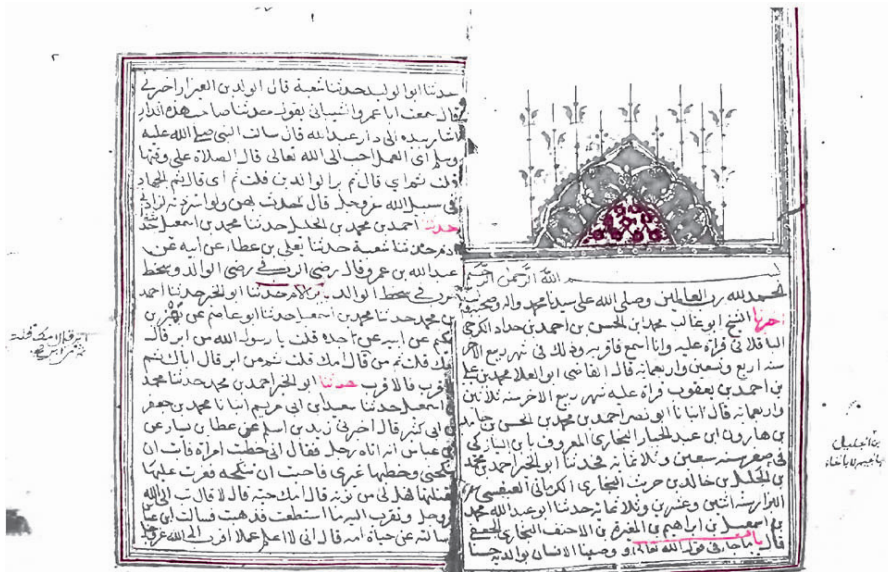 بسم الله الرحمن الرحيم
الحمد لله رب العالمين وصلى الله على سيدنا محمد واله وصحبه
اخبرنا الشيخ ابو غالب محمد بن الحسن بن احمد بن حداد الكرجي
الباقلاني قراة عليه وانا اسمع فاقر به وذلك في شهر ربيع الاخر
سنه اربع وتسعين واربعمائه قال القاضي ابو العلا محمد بن علي
بن احمد بن يعقوب قراة عليه شهر ربيع الاخر سنه ثلاثين
واربعمائه قال انبانا ابو نصر احمد بن محمد بن الحسن بن حامد
بن هارون ابن عبد الجبار البخاري المعروف بابن النيازكي
في صفر سنه سبعين وثلاثمائه فحدثنا ابو الخير احمد بن محمد
بن الجليل بن خالد بن حريث البخاري الكرماني العبقسي
البزار سنة اثنين وعشرين وثلاثمائه حدثنا ابو عبد الله محمد
بن اسمعيل بن ابراهيم بن المغيرة بن الاحنف البخاري الجعفي
قال باب ما جاء في قول الله تعالى ووصينا الانسان بوالديه حسنا
حدثنا ابو الوليد حدثنا شعبة قال الوليد بن العيزار اخبرني
قال سمعت ابا عمرو الشيباني يقول حدثنا صاحب هذه الدار
واشار بيده الى دار عبد الله قال سالت النبي صلى الله عليه
وسلم اي العمل احب الى الله تعالى قال الصلاة على وقتها
قلت ثم اي قال ثم بر الوالدين قلت ثم اي قال ثم الجهاد
في سبيل الله عز وجل قال حدثني بهن ولو استزدته لزادني
حدثنا احمد بن محمد بن الجليل حدثنا محمد بن اسمعيل حدثنا
ادم حدثنا شعبة حدثنا يعلى بن عطاء عن ابيه عن
عبد الله بن عمرو قال رضى الرب في رضى الوالد وسخط
الرب في سخط الوالد باب بر الام حدثنا ابو الخير حدثنا احمد
بن محمد حدثنا محمد بن اسمعيل حدثنا ابو عاصم عن بهز بن
حكيم عن ابيه عن جده قلت يا رسول الله من ابر قال
امك قلت ثم من قال امك قلت ثم من ابر قال اباك ثم
الاقرب فالاقرب حدثنا ابو الخير احمد بن محمد حدثنا محمد
بن اسمعيل حدثنا سعيد بن ابي مريم انبانا محمد بن جعفر
بن ابي كثير قال اخبرني زيد بن اسلم عن عطا بن يسار عن
ابن عباس انه اتاه رجل فقال اني خطبت امراة فابت ان
تنكحني وخطبها غيري فاحبت ان تنكحه فغرت عليها
فقتلتها هل لي من توبة قال امك حية قال لا قال تب الى الله
عز وجل وتقرب اليه ما استطعت فذهبت فسالت ابن عباس
سالته عن حياة امه قال اني لا اعلم عملا اقرب الى الله عز وجل